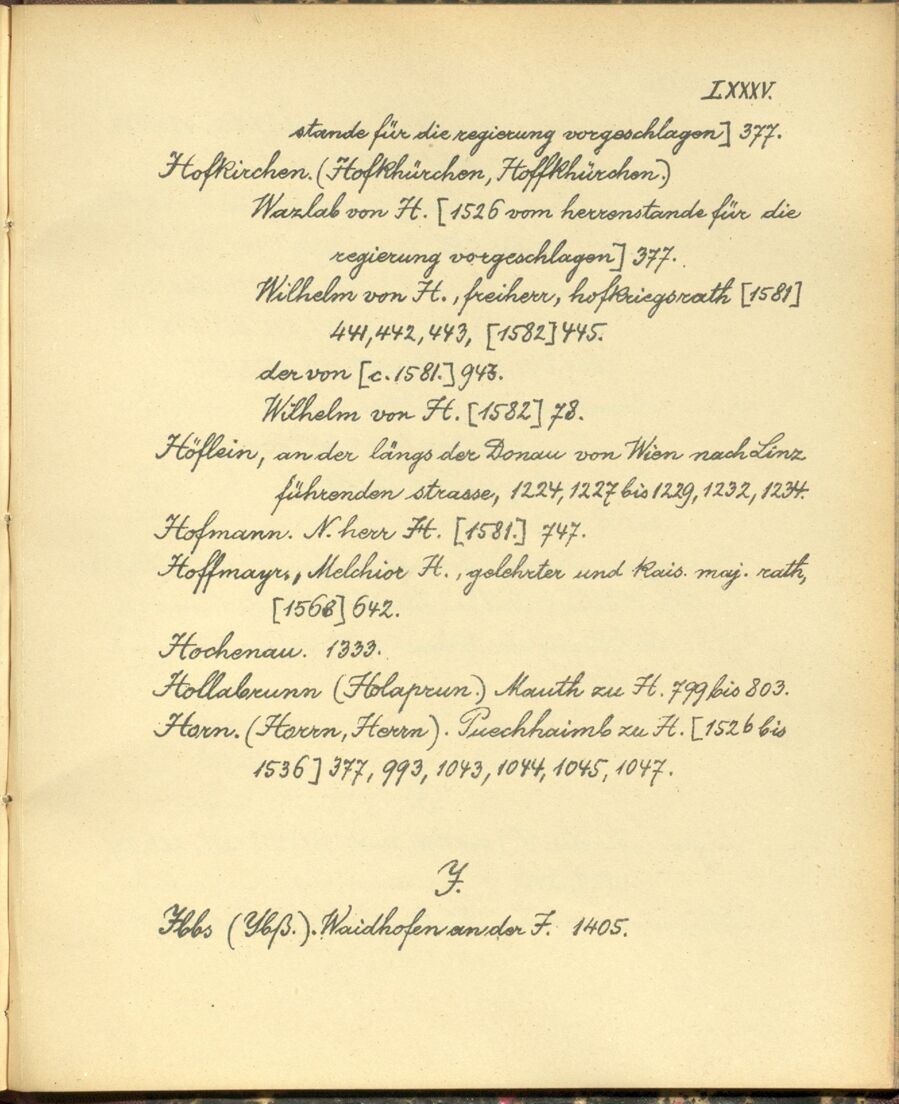 LXXXV.
stande für die regierung vorgeschlagen] 377.
Hofkirchen. (Hofkhürchen, Hoffkhürchen.)
Wazlab von H. [1526 vom herrenstande für die
regierung vorgeschlagen] 377.
Wilhelm von H., freiherr, hofkriegsrath [1581]
441, 442, 443, [1582] 445.
der von [c. 1581.] 943.
Wilhelm von H. [1582] 78.
Höflein, an der längs der Donau von Wien nach Linz
führenden strasse, 1224, 1227 bis 1229, 1232, 1234.
Hofmann. N. herr H. [1581.] 747.
Hoffmayr., Melchior H., gelehrter und kais. maj. rath,
[1568] 642.
Hochenau. 1333.
Hollabrunn (Holaprun.) Mauth zu H. 799 bis 803.
Horn. (Horrn, Herrn). Puechhaimb zu H. [1526 bis
1536] 377, 993, 1043, 1044, 1045, 1047.
J.
Ibbs (Ybß.). Waidhofen an der J. 1405.